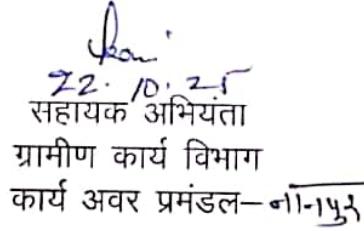 22.10.25
सहायक अभियंता
ग्रामीण कार्य विभाग
कार्य अवर प्रमंडल–नानपुर